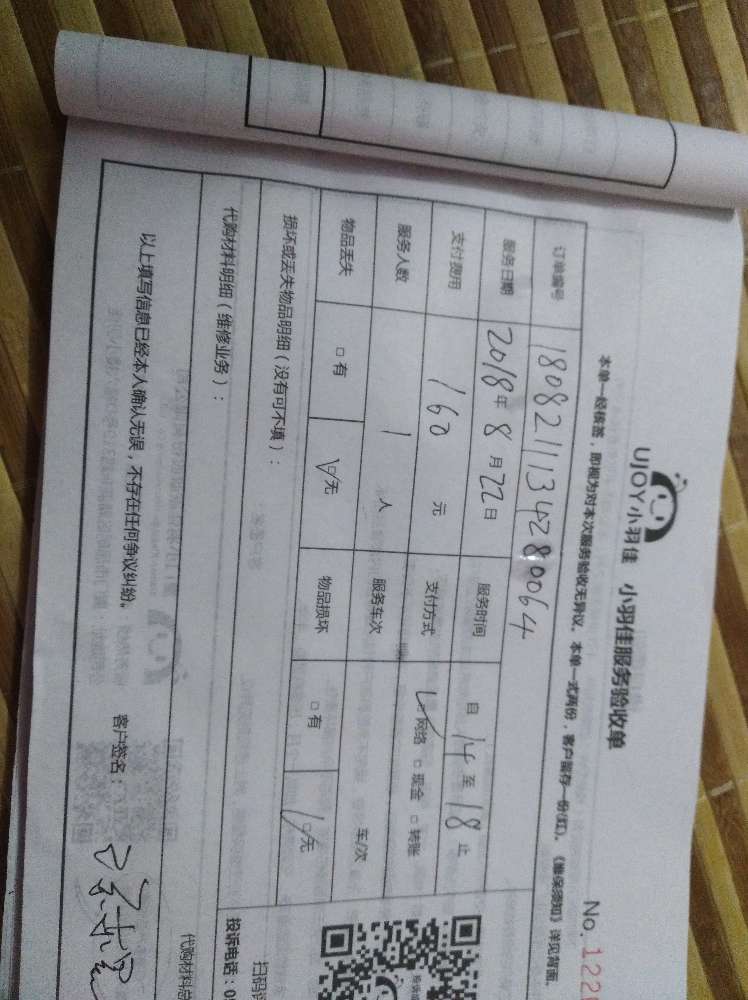 UJOY小羽佳 小羽佳服务验收单
No. 122
本单一经核签，即视为对本次服务验收无异议。本单一式两份，客户留存一份(红)。《维保须知》详见背面。
订单编号 1808211134280064
服务日期 2018年 8月22日 服务时间 自 14 至 18 止
支付费用 160 元 支付方式 ☑网络 □现金 □转账
服务人数 1 人 服务车次 车/次
物品丢失 □有 ☑无 物品损坏 □有 ☑无
损坏或丢失物品明细（没有可不填）：
扫码
代购材料明细（维修业务）：
投诉电话：0
代购材料总
以上填写信息已经本人确认无误，不存在任何争议纠纷。 客户签名：